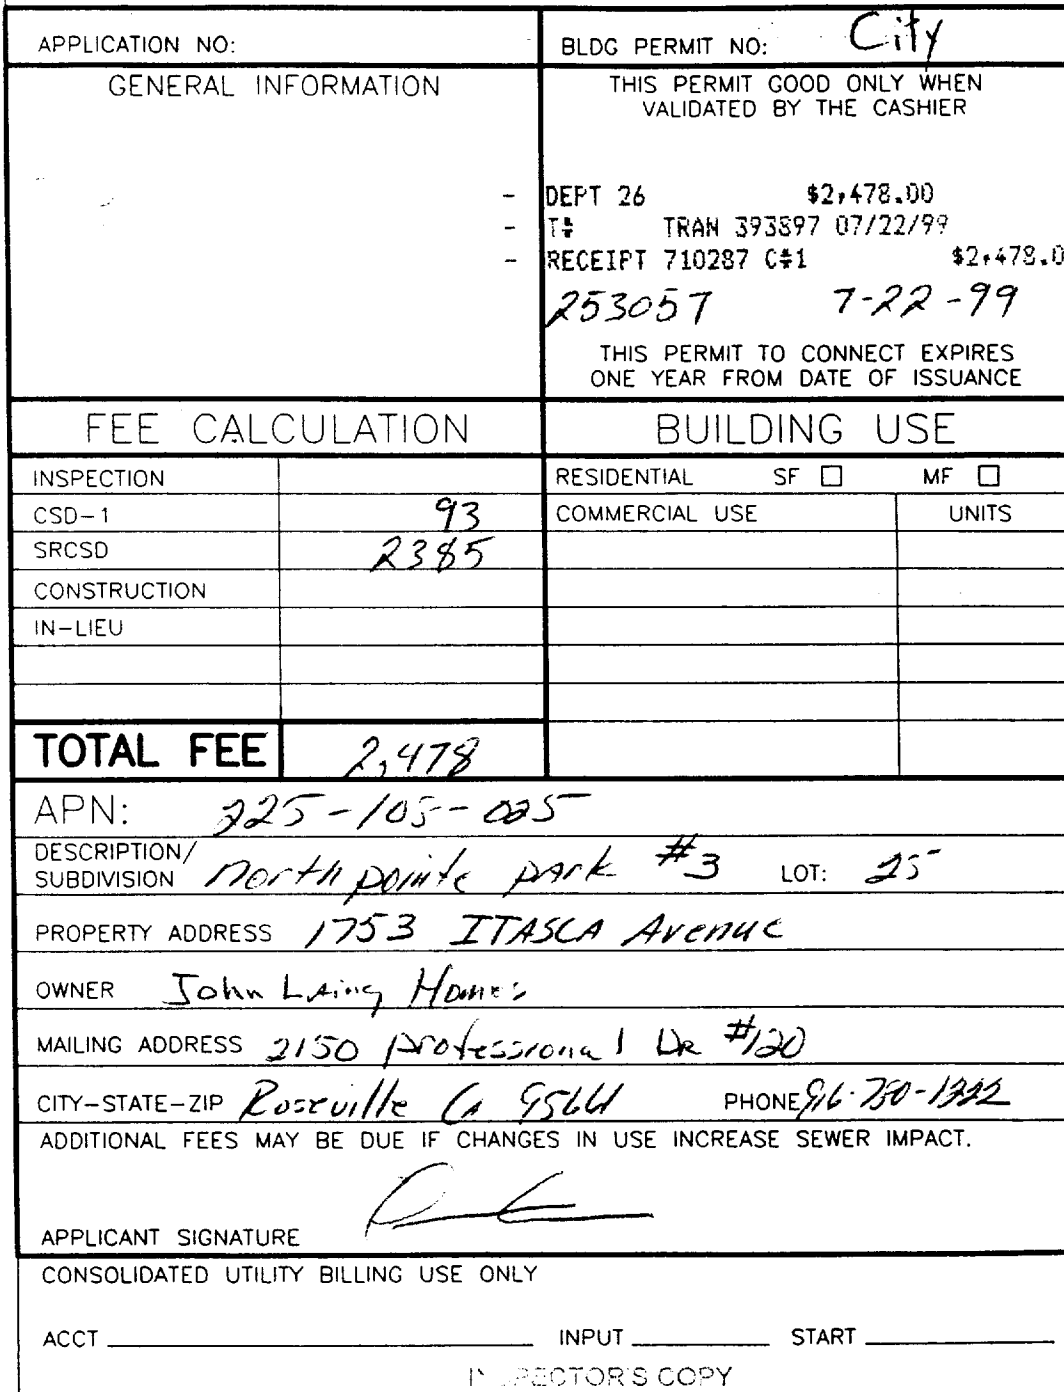 APPLICATION NO:
BLDG PERMIT NO: City
GENERAL INFORMATION
THIS PERMIT GOOD ONLY WHEN
VALIDATED BY THE CASHIER
- DEPT 26 $2,478.00
- T# TRAN 393897 07/22/99
- RECEIPT 710287 C#1 $2,478.0
253057 7-22-99
THIS PERMIT TO CONNECT EXPIRES
ONE YEAR FROM DATE OF ISSUANCE
FEE CALCULATION
INSPECTION
CSD-1 93
SRCSD 2385
CONSTRUCTION
IN-LIEU
TOTAL FEE 2,478
BUILDING USE
RESIDENTIAL SF ☐ MF ☐
COMMERCIAL USE UNITS
APN: 225-105-025
DESCRIPTION/
SUBDIVISION northpointe park #3 LOT: 25
PROPERTY ADDRESS 1753 ITASCA Avenue
OWNER John Laing Homes
MAILING ADDRESS 2150 professional DR #120
CITY-STATE-ZIP Roseville Ca 95661 PHONE
ADDITIONAL FEES MAY BE DUE IF CHANGES IN USE INCREASE SEWER IMPACT.
APPLICANT SIGNATURE
CONSOLIDATED UTILITY BILLING USE ONLY
ACCT INPUT START
INSPECTOR'S COPY